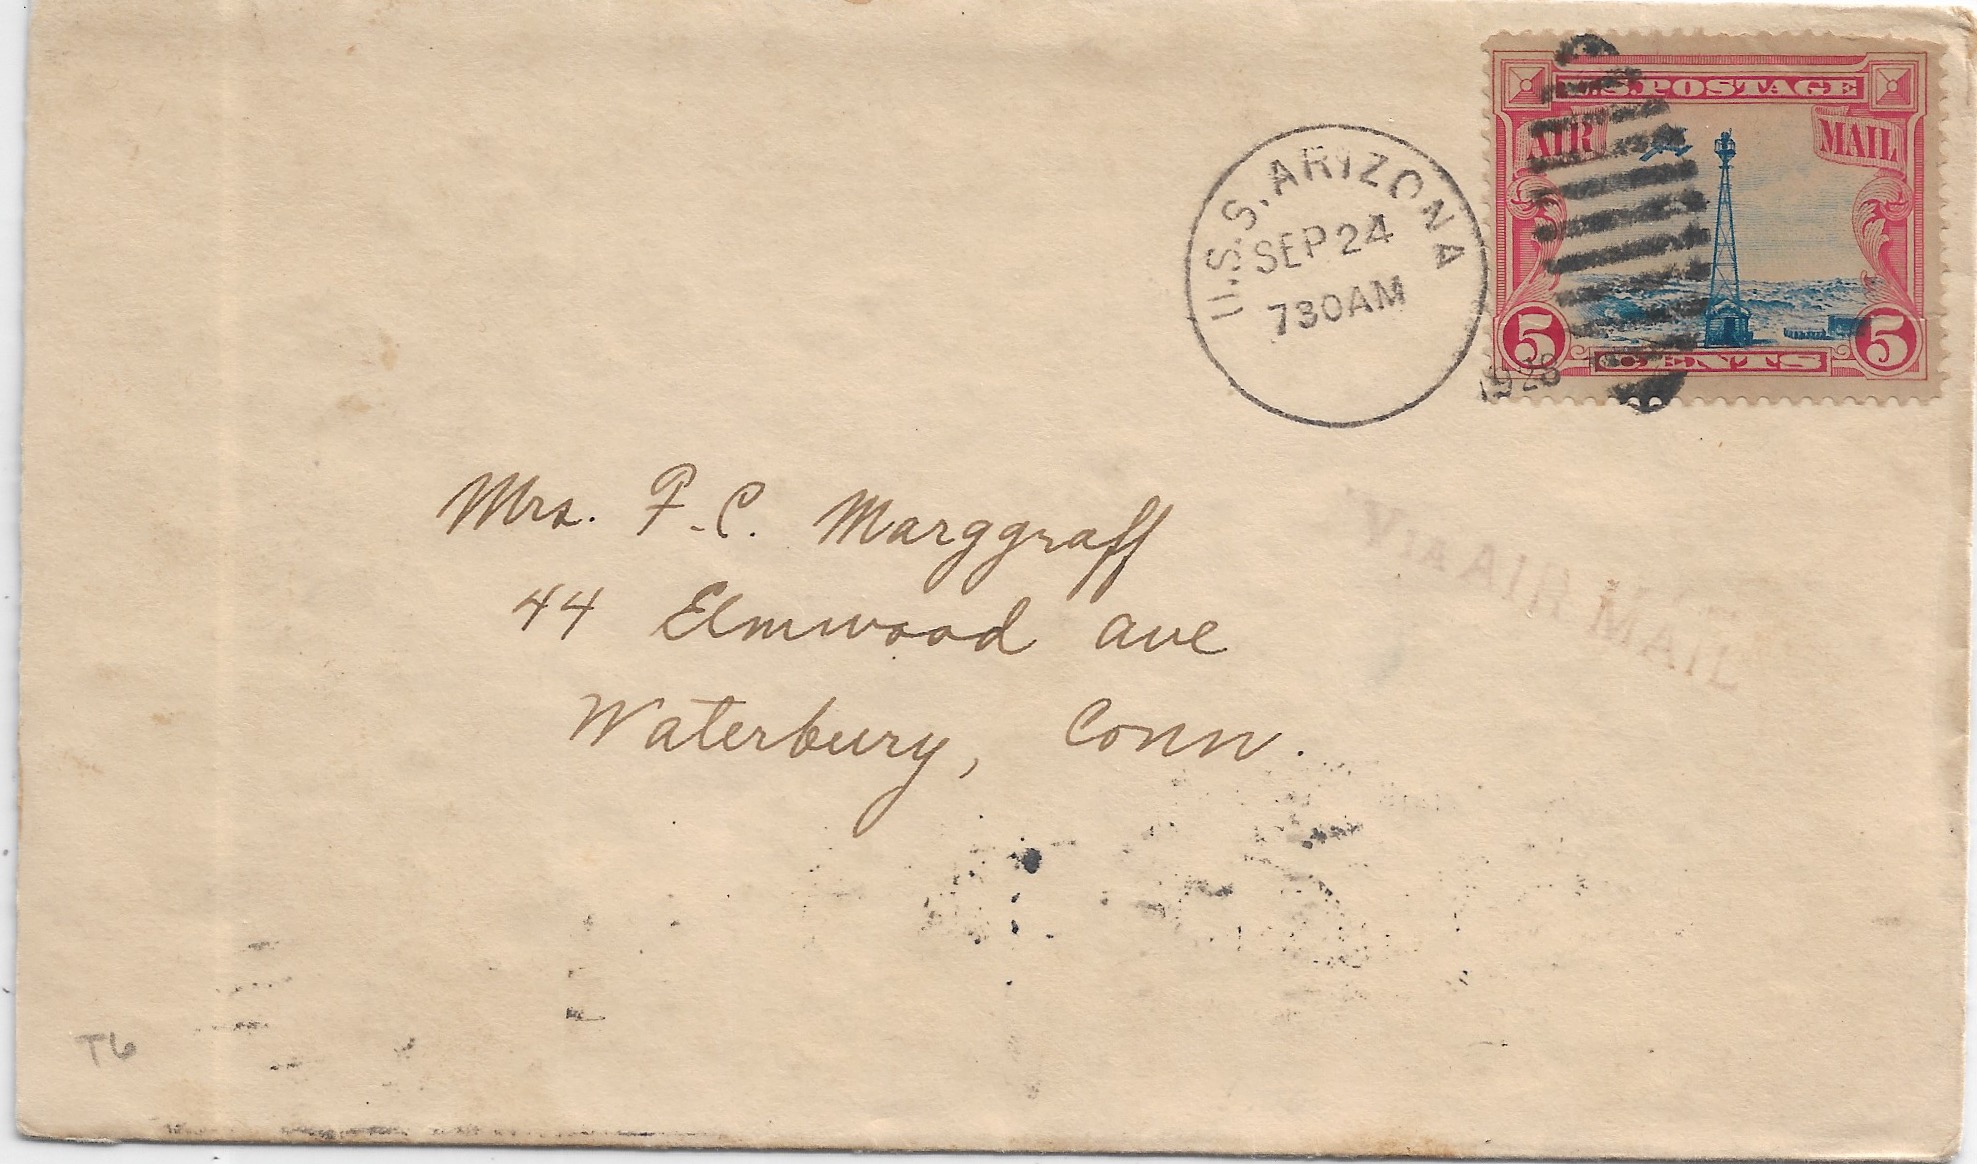 U.S. POSTAGE
AIR MAIL
5 CENTS 5
U.S.S. ARIZONA
SEP 24
730AM
1928
Mrs. F. C. Marggraff
44 Elmwood ave
Waterbury, Conn.
VIA AIR MAIL
T6